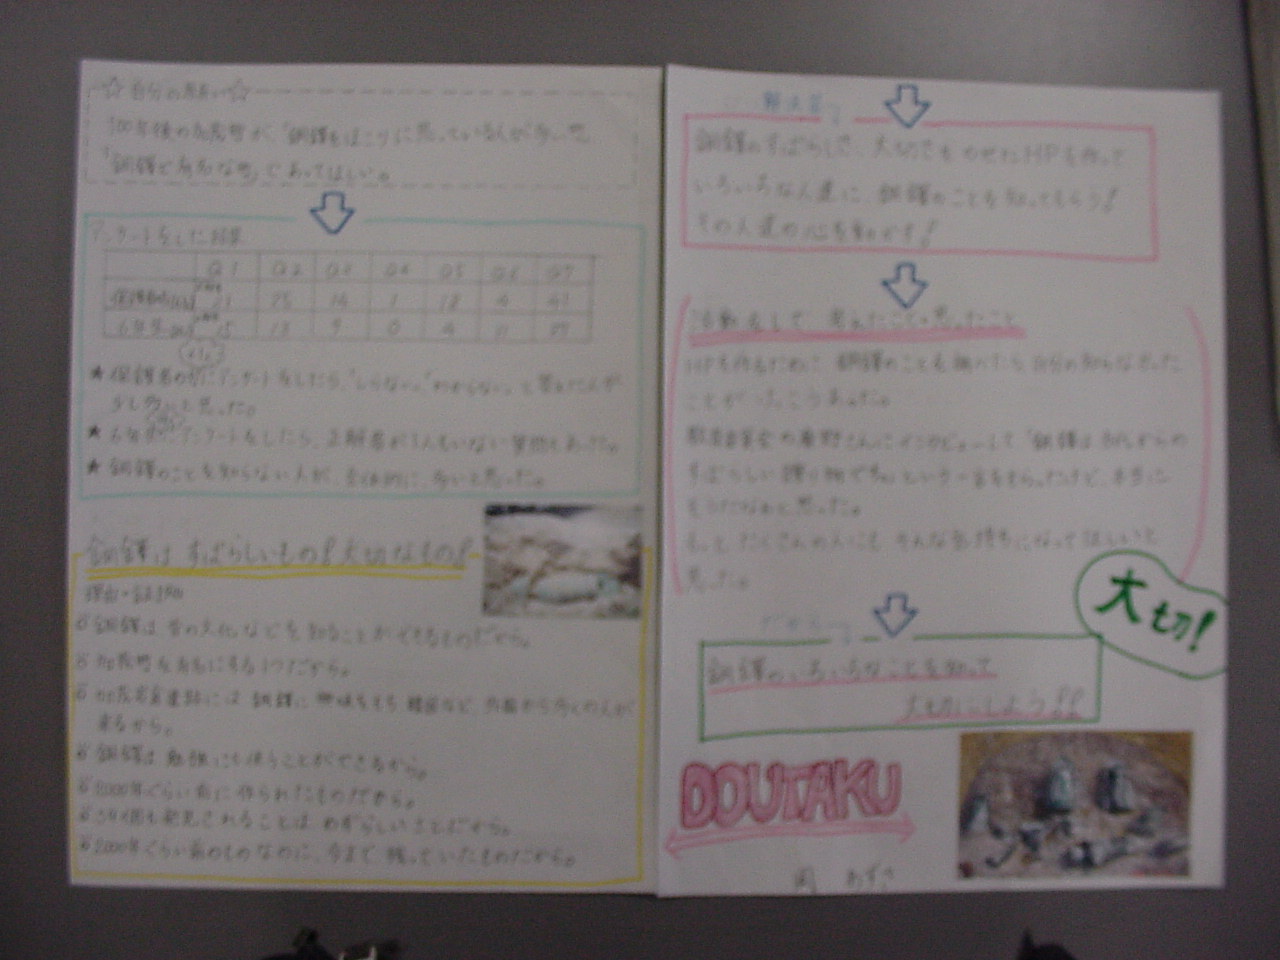 ☆自分の願い☆
100年後の加茂町が、「銅鐸をほこりに思っている人が多い町
「銅鐸で有名な町」であってほしい。
アンケートをした結果
Q1 Q2 Q3 Q4 Q5 Q6 Q7
25 14 1 18 4 41
6年生 5 13 9 0 4 11
★保護者の方にアンケートをしたら、「しらない」「わからない」と答えた人が
少し多いと思った。
★6年生にアンケートをしたら、正解者が1人もいない質問もあった。
★銅鐸のことを知らない人が、全体的に、多いと思った。
銅鐸はすばらしいもの!大切なもの!
理由・証拠
銅鐸は昔の文化などを知ることができるものだから。
加茂町を有名にする1つだから。
加茂岩倉遺跡には銅鐸に興味をもち韓国など、外国から多くの人が
来るから。
銅鐸は勉強にも使うことができるから。
2000年ぐらい前に作られたものだから。
39個も発見されることはめずらしいことだから。
2000年ぐらい前のものなのに、今まで残っていたものだから。
解決策
銅鐸のすばらしさ、大切さをのせたHPを作って
いろいろな人達に、銅鐸のことを知ってもらう!
その人達の心を動かす!
活動をして考えたこと・思ったこと
HPを作るために銅鐸のことを調べたら自分の知らなかった
ことがいっぱいあった。
教育委員会の さんにインタビューして「銅鐸は からの
すばらしい贈り物ですね」という一言をもらったけど、本当に
そうだなあと思った。
もっとたくさんの人にもそんな気持ちになってほしいと
思った。
大切!
だから
銅鐸のいろいろなことを知って
大切にしよう!!
DOUTAKU